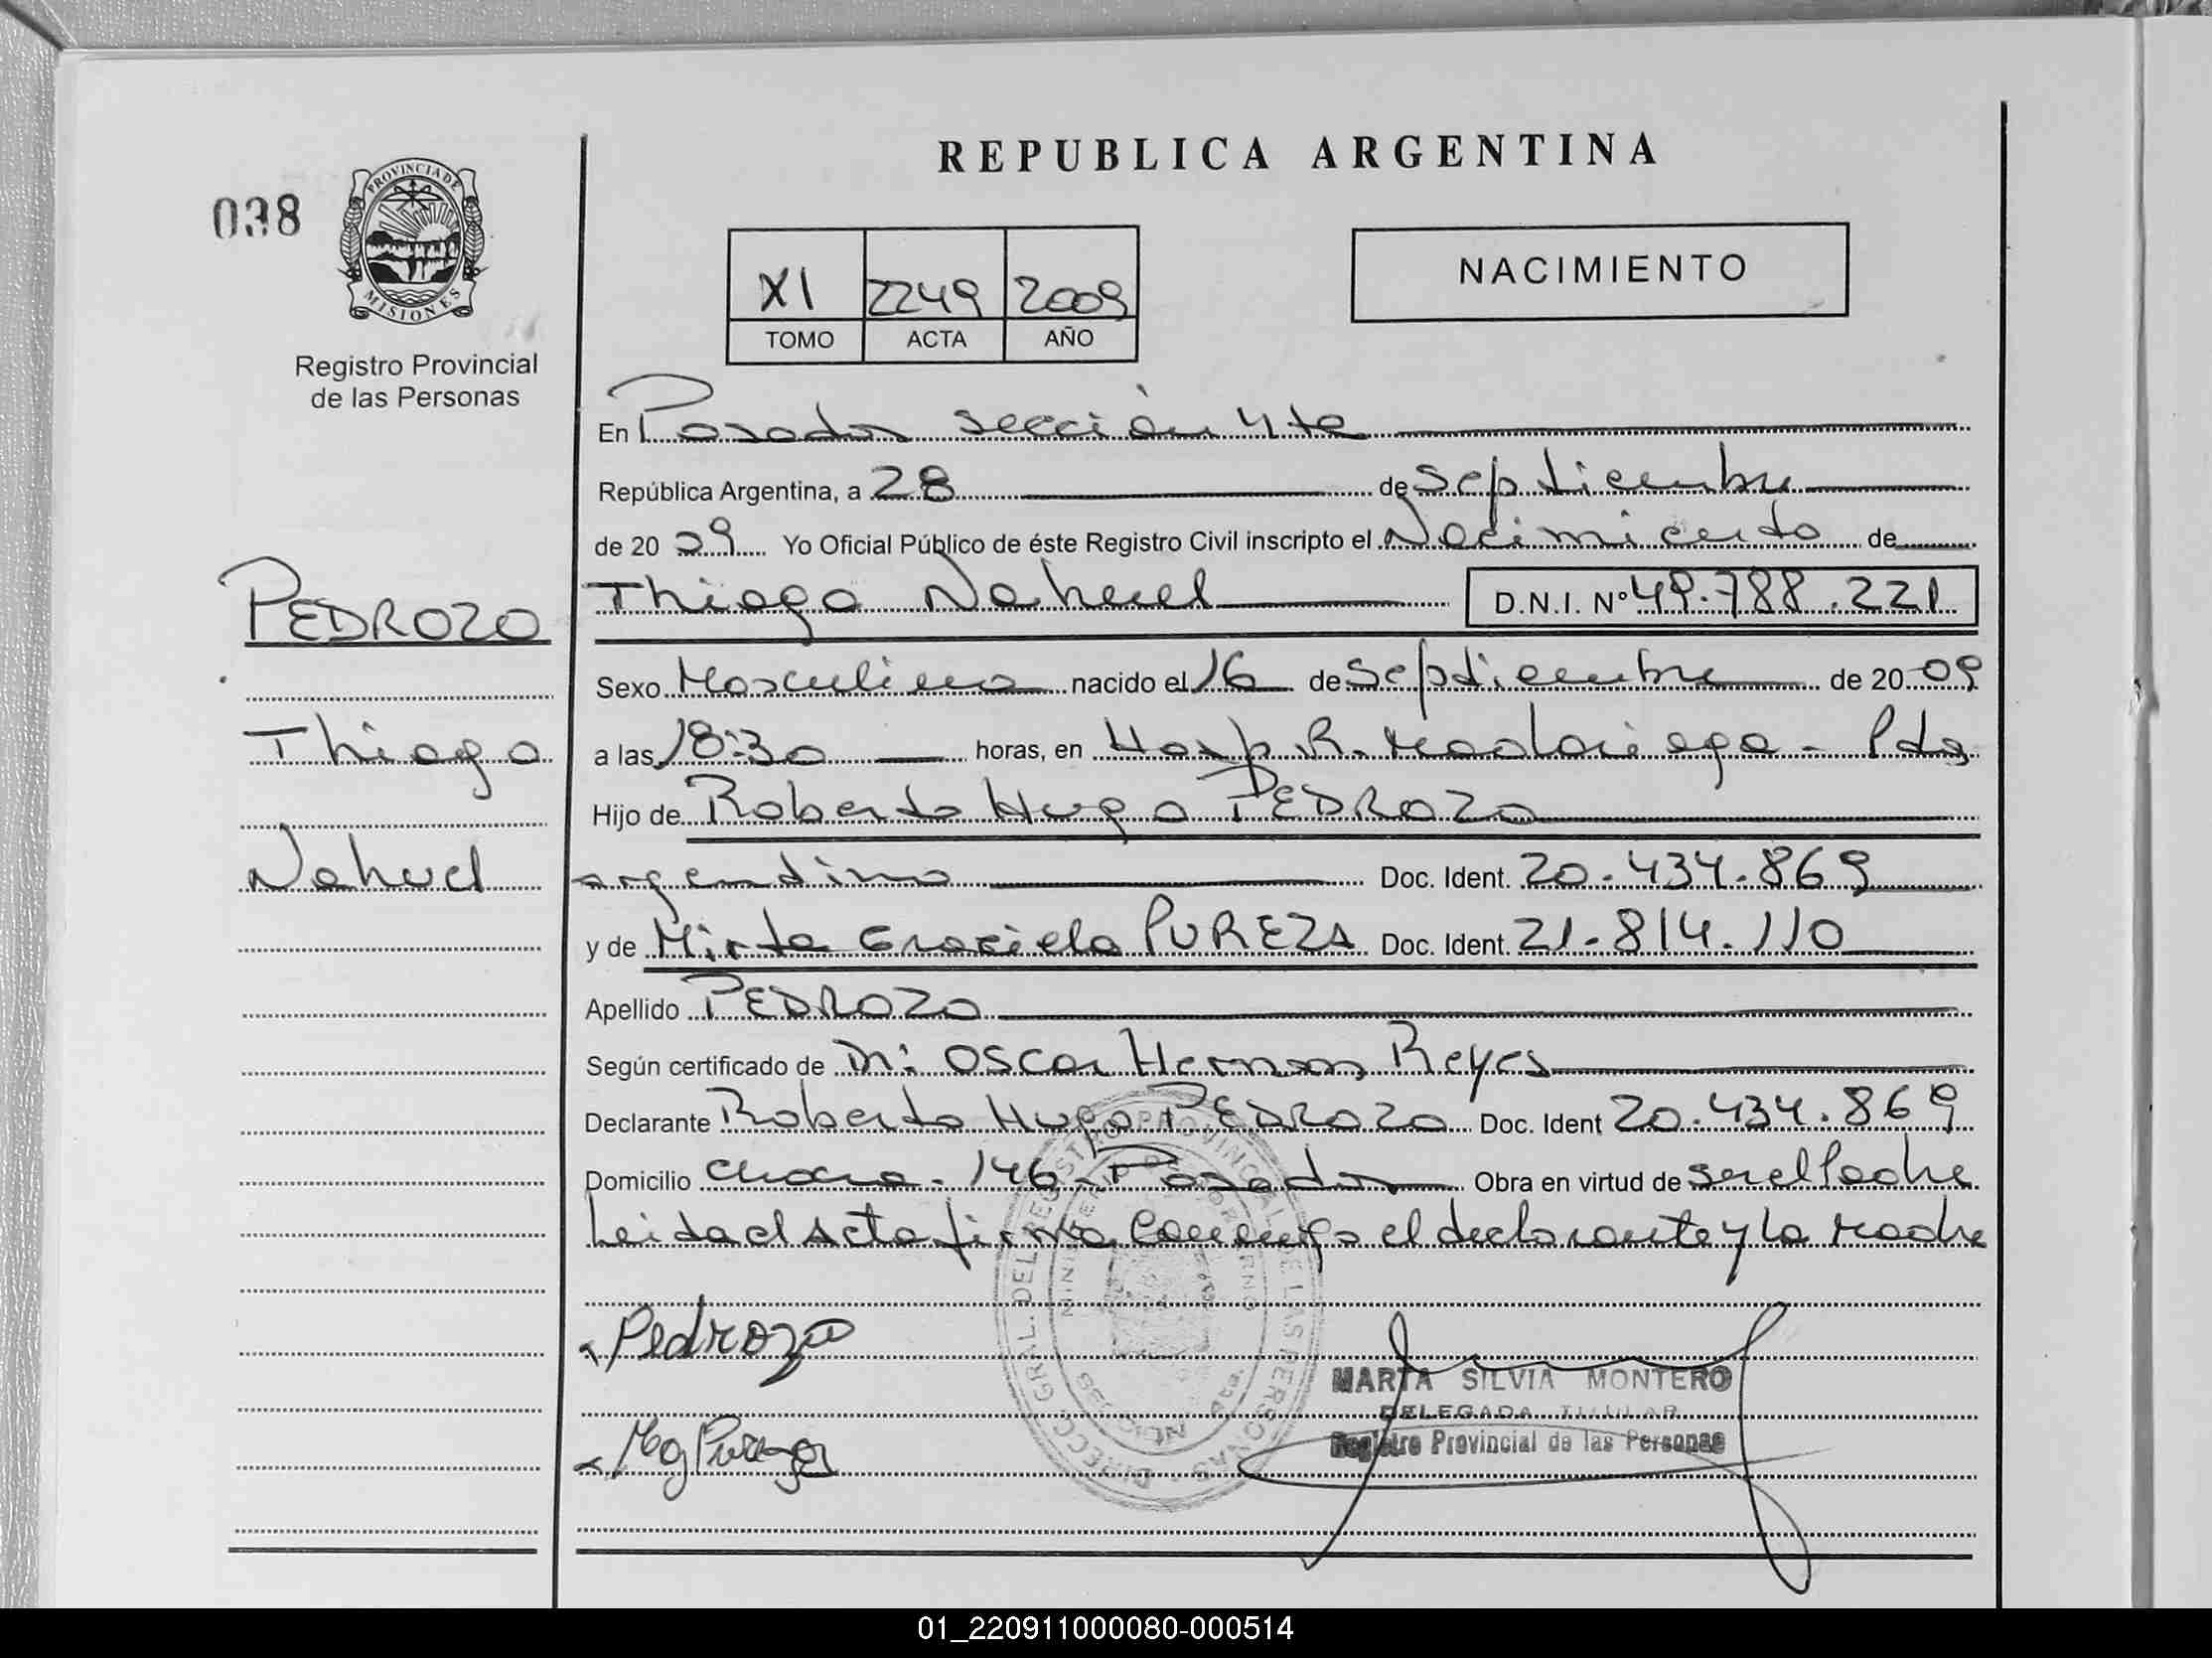 REPUBLICA ARGENTINA
038
PROVINCIA DE
MISIONES
Registro Provincial
de las Personas
XI 2249 2009
TOMO ACTA AÑO
NACIMIENTO
En Posadas sección 4ta
República Argentina, a 28 de septiembre
de 20 09 Yo Oficial Público de éste Registro Civil inscripto el Nacimiento de
Thiago Nahuel D.N.I. Nº 49.788.221
PEDROZO
Thiago
Nahuel
Sexo Masculino nacido el 16 de Septiembre de 20 09
a las 18:30 horas, en Hosp. R. Madariaga - Pdas
Hijo de Roberto Hugo PEDROZO
argentino Doc. Ident. 20.434.869
y de Mirta Graciela PUREZA Doc. Ident. 21.814.110
Apellido PEDROZO
Según certificado de Dr: Oscar Hernan Reyes
Declarante Roberto Hugo PEDROZO Doc. Ident 20.434.869
Domicilio Chacra - 146 - Posadas Obra en virtud de ser el Padre
Leida el Acta firma conmigo el declarante y la Madre
Pedrozo
MARTA SILVIA MONTERO
DELEGADA TITULAR
Registro Provincial de las Personas
Mg Pureza
DIRECC. GRAL. DEL REGISTRO PROVINCIAL DE LAS PERSONAS
01_220911000080-000514